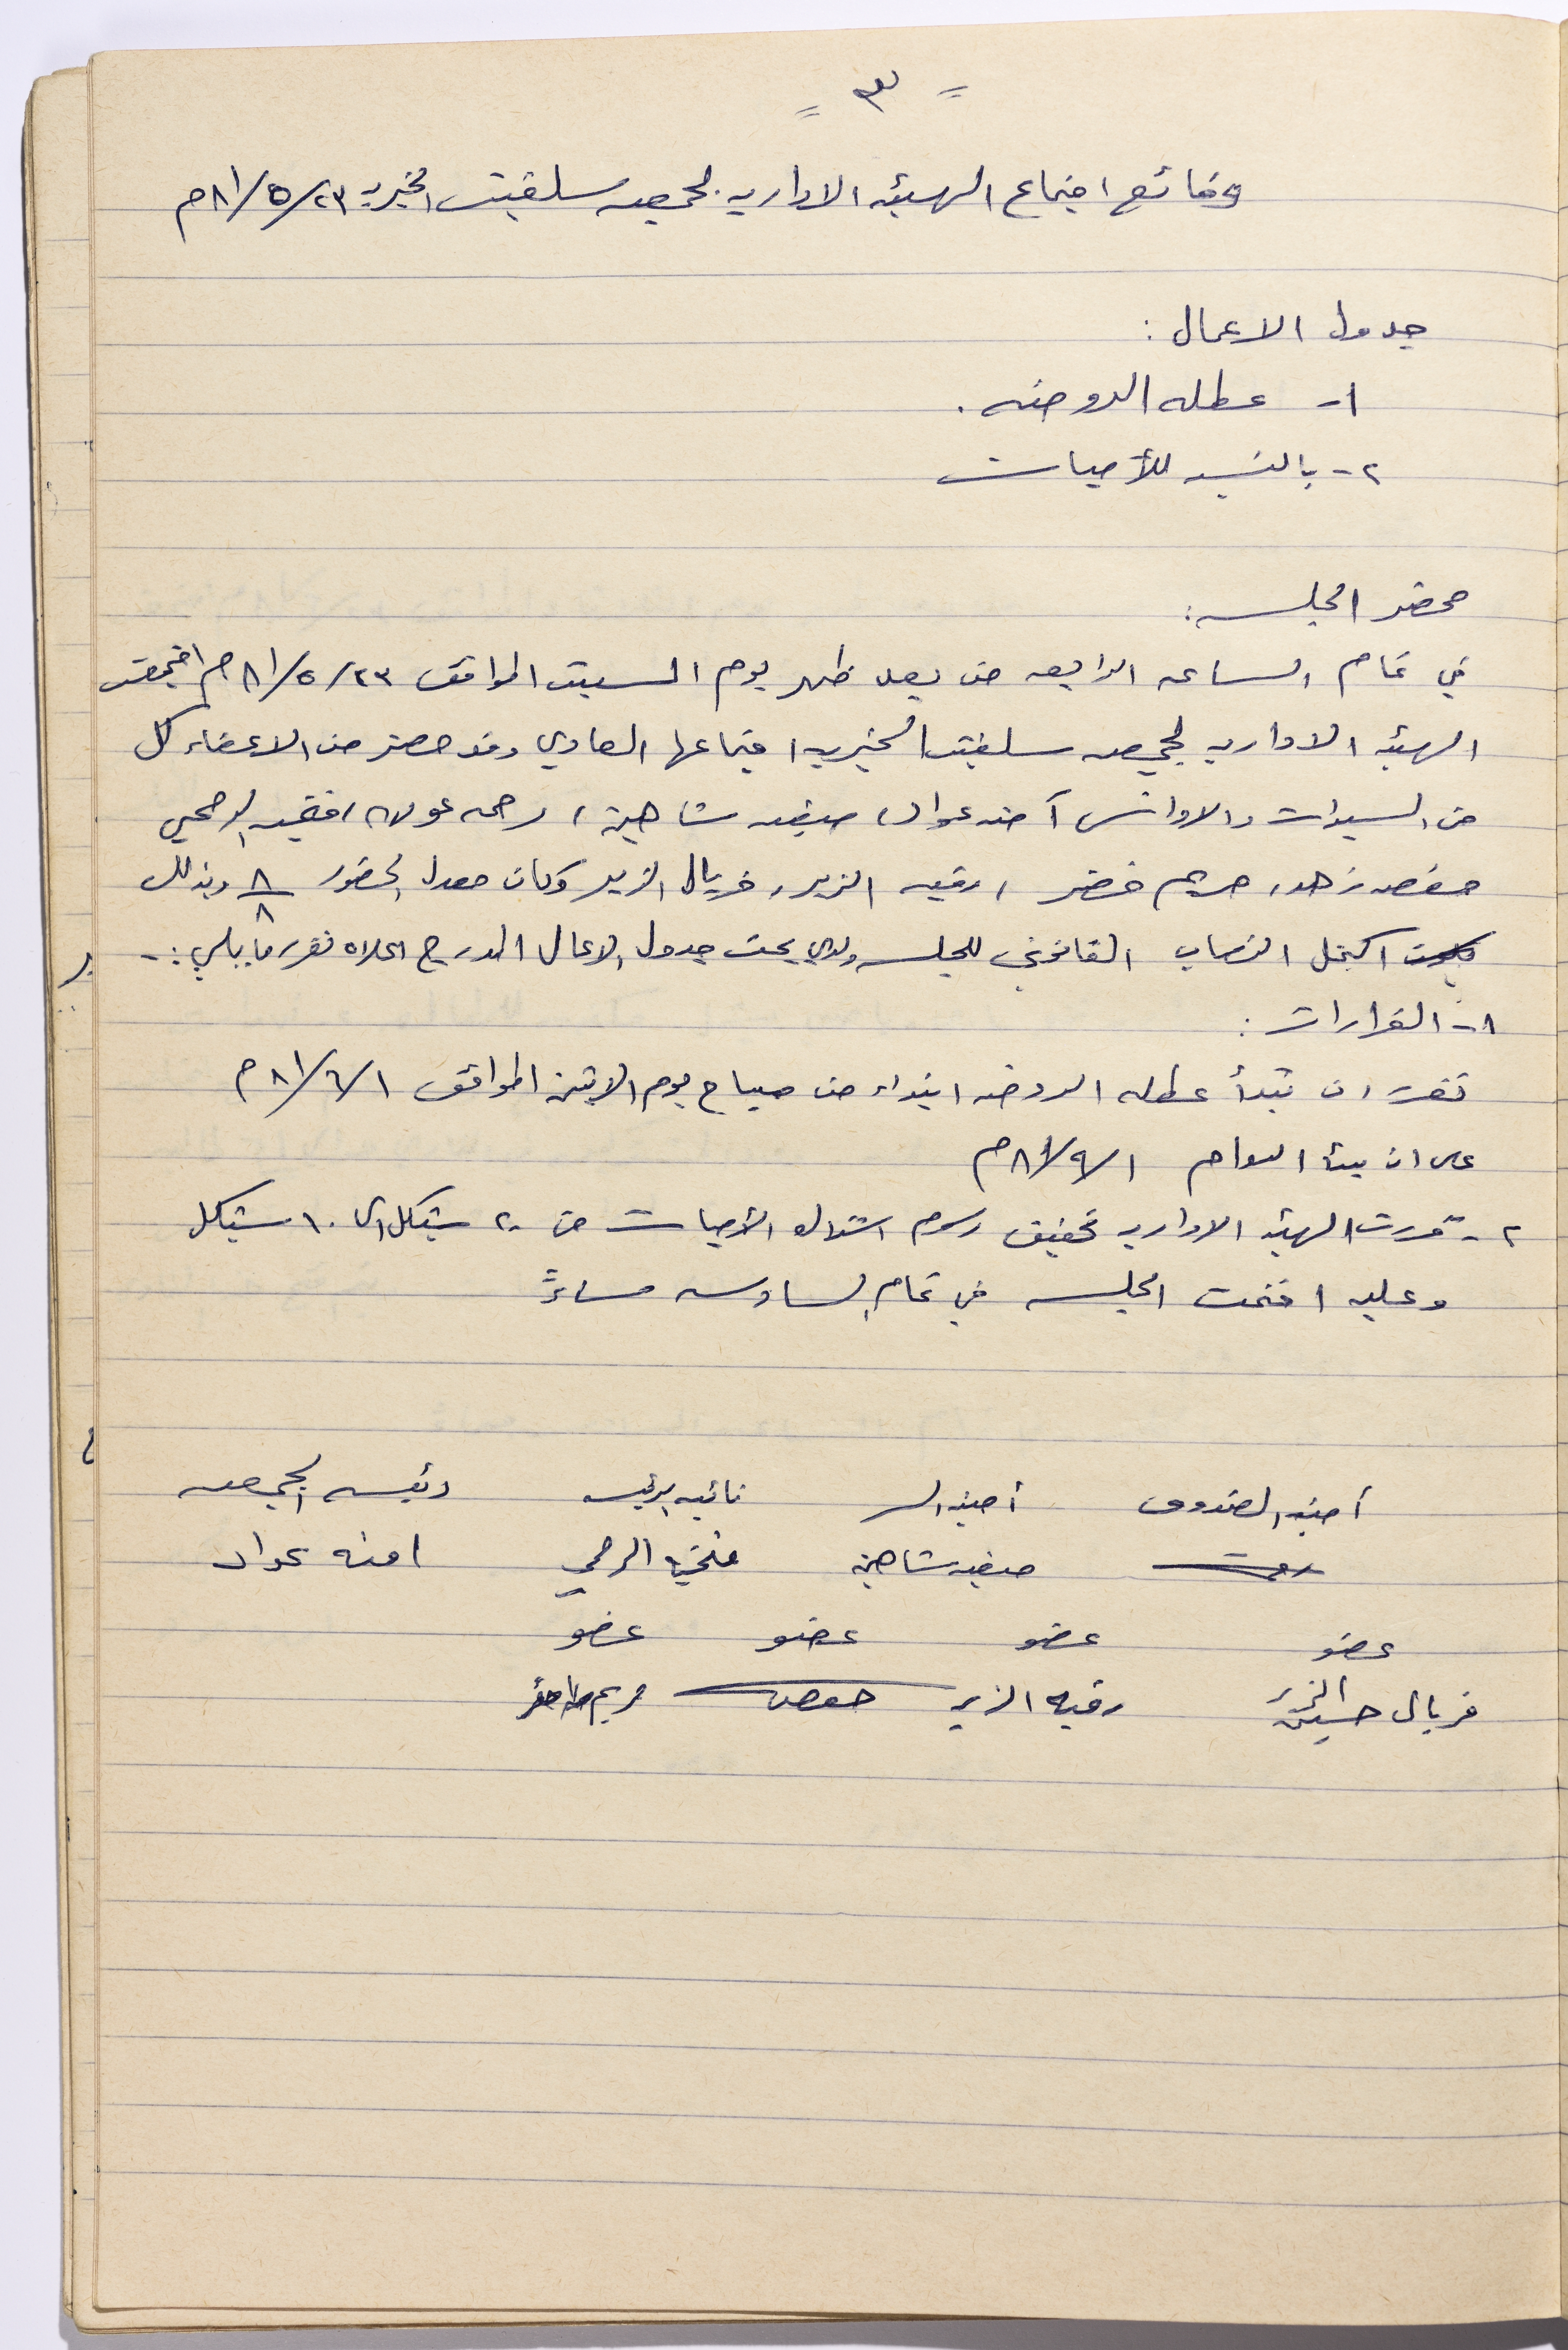 = ٣ =
وقائع اجتماع الهيئه الاداريه لجمعيه سلفيت الخيريه ٢٣/٥/٨١م
جدول الاعمال :
١- عطله الروضه .
٢- بالنسبه للأميات
محضر الجلسه :
في تمام الساعه الرابعه من بعد ظهر يوم السبت الموافق ٢٣/٥/٨١م اجتمعت
الهيئه الاداريه لجمعيه سلفيت الخيريه اجتماعها العادي وقد حضر من الاعضاء كل
من السيدات والاوانس آمنه عواد، صفيه شاهين، رحمه عوده، فتحيه الرمحي
حفصه زهد، مريم خضر، رقيه الزير، فريال الزير وكان معدل الحضور ٨/٨ وبذلك
اكتمل النصاب القانوني للجلسه ولدى بحث جدول الاعمال المدرج اعلاه تقرر ما يلي :-
١- القرارات :
تقرر ان تبدأ عطله الروضه ابتداء من صباح يوم الاثنين الموافق ١/٦/٨١م
على ان يبدأ الدوام ١/٩/٨١م
٢- قررت الهيئه الاداريه تخفيض رسوم اشتراك الأميات من ٢٠ شيكل الى ١٠ شيكل
وعليه اختتمت الجلسه في تمام السادسه مساءً
أمينه الصندوق أمينه السر نائبه الرئيسه رئيسه الجمعيه
صفيه شاهين فتحيه الرمحي امنه عواد
عضو عضو عضو عضو
فريال حسين الزير رقيه الزير حفصه مريم